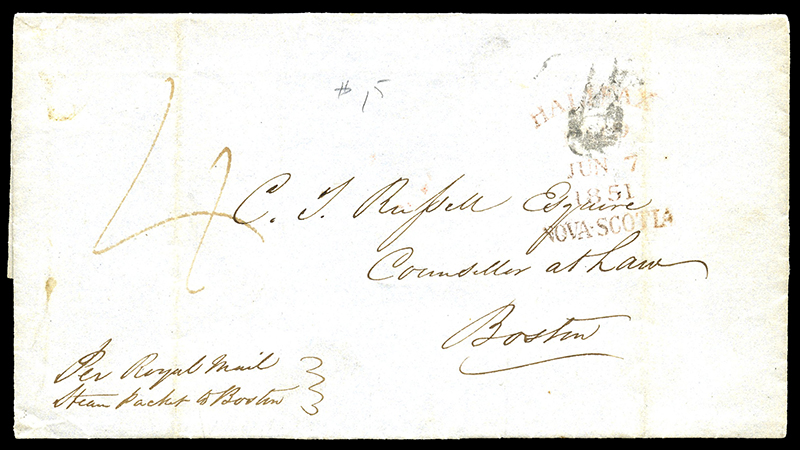 4
# 15
HALIFAX
JUN 7
1851
NOVA-SCOTIA
C. T. Russell Esquire
Counsellor at Law
Boston
Per Royal Mail
Steam Packet to Boston